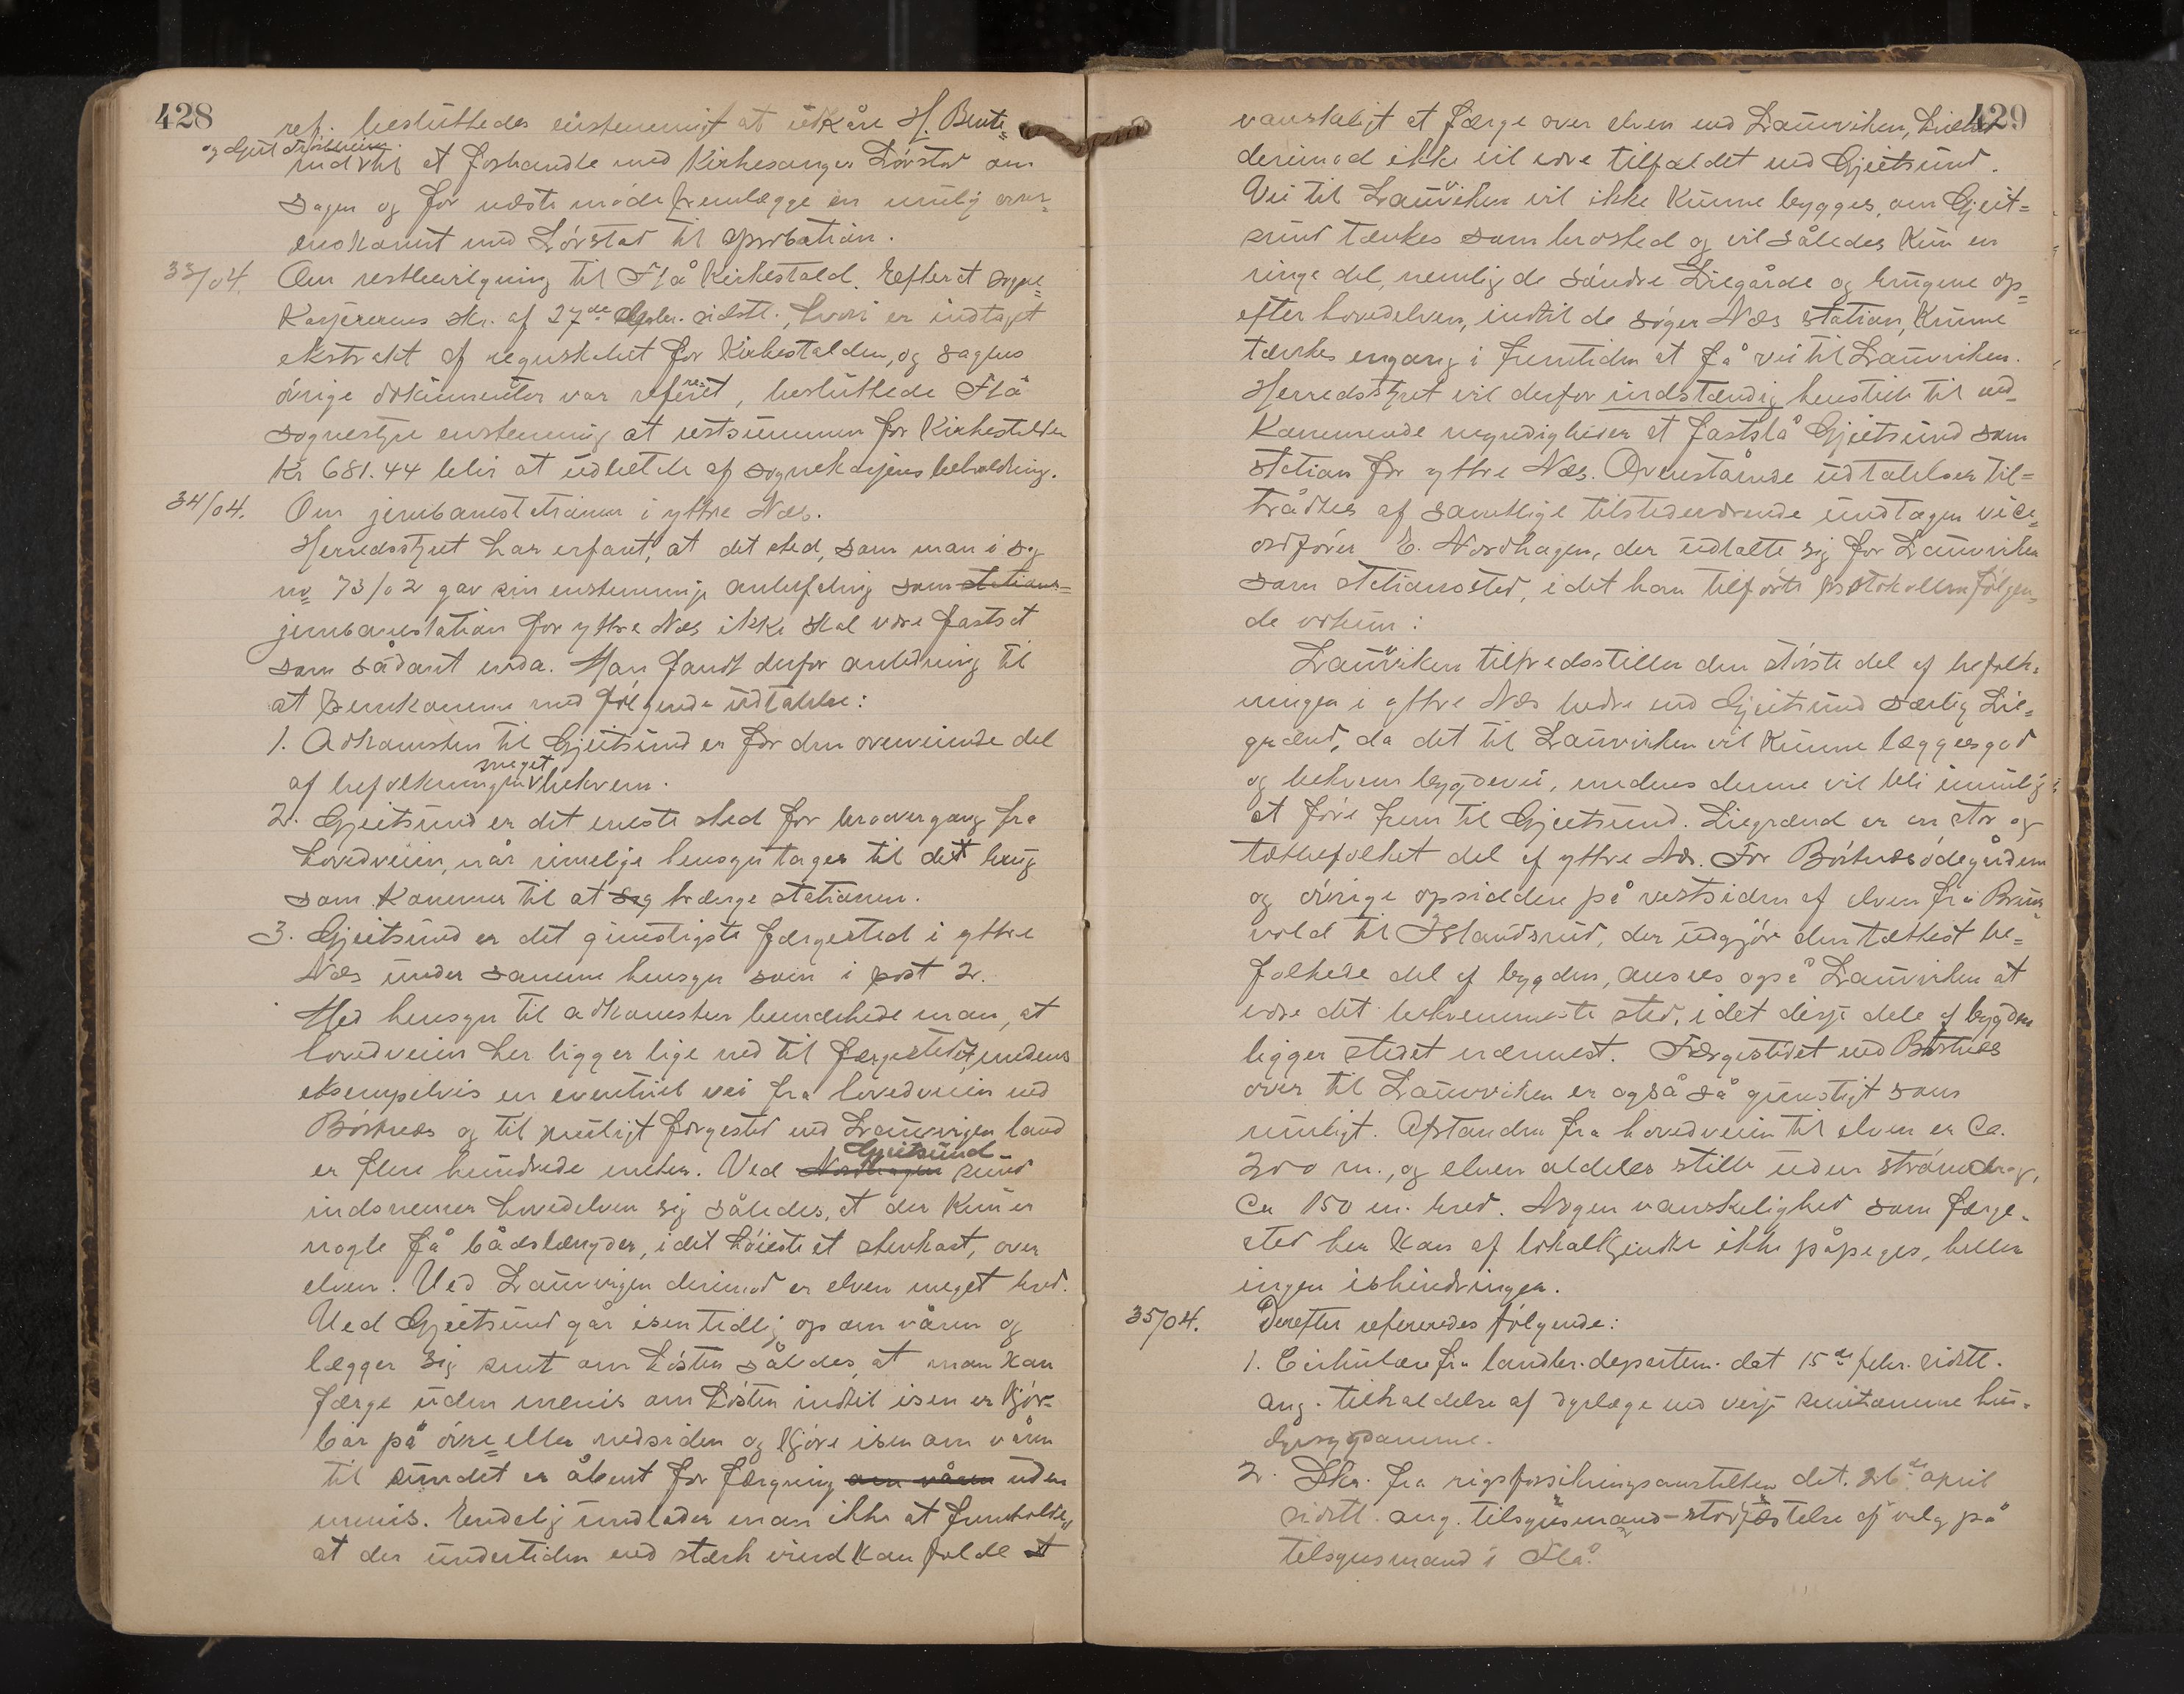 428
ref. besluttedes enstemmigt at udkåre H. Bent=
rud til at forhandle med Kirkesanger Lövstad om
sagen og for næste möde fremlægge en mulig over=
enskomst med Lövstad til approbation.
33/04. Om restbevilgning til Flå Kirkestald. Efterat sogne=
kasjererens skr. af 27de sidstl., hvori er indtaget
ekstrakt af regnskabet for Kirkestalden, og sagens
övrige dokumenter var referet, besluttede Flå
sognestyre enstemmig at restsummen for Kirkestalden
kr 681.44 blir at udbetale af sognekasjens beholdning.
34/04. Om jernbanestationen i yttre Næs.
Herredsstyret har erfaret, at det sted, som man i sag
no 73/02 gav sin enstemmige anbefaling som stations=
jernbanestation for yttre Næs ikke skal være fastsat
som sådant enda. Man fandt derfor anledning til
at fremkomme med fölgende udtalelse:
1. Adkomsten til Gjeitsund er for den overveiende del
af befolkningen meget bekvem.
2. Gjeitsund er det eneste sted for broovergang fra
hovedveien, når rimelige hensyn tages til det brug
som kommer til at søg trænge stationen.
3. Gjeitsund er det gunstigste færgested i yttre
Næs under samme hensyn som i post 2.
Med hensyn til adkomsten bemærkede man, at
hovedveien her ligger lige ned til færgestedet, medens
eksempelvis en eventuel vei fra hovedveien ved
Börtnæs og til muligt færgested ved Lauvvigen land
er flere hundrede meter. Ved Nordhagen Gjeitsund sund
indsnevrer hovedelven sig således, at der kun er
nogle få bådslængder, i det höieste et stenkast, over
elven. Ved Lauvvigen derimod er elven meget bred.
Ved Gjeitsund går isen tidlig op om våren og
lægger sig sent om hösten således, at man kan
færge uden menis om hösten indtil isen er kjör=
bar på övre eller nedsiden og kjöre isen om våren
til sundet er åbent for færgning om våren uden
menis. Endelig undlader man ikke at fremholde,
at der undertiden ved stærk vind kan falde et
429
vanskeligt at færge over elven ved Lauvviken, hvilket
derimod ikke vil være tilfældet ved Gjeitsund.
Vei til Lauvviken vil ikke kunne bygges, om Gjeit=
sund tænkes som brosted og vil således kun en
ringe del, nemlig de söndre Liegårde og brugene op=
efter hovedelven, indtil de söger Næs station, kunne
tænkes engang i fremtiden at få vei til Lauvviken.
Herredsstyret vil derfor indstændig henstille til ved=
kommende myndigheder at fastslå Gjeitsund som
station for yttre Næs. Ovenstående udtalelser til=
trådtes af samtlige tilstedeværende undtagen vice=
ordförer E. Nordhagen, der udtalte sig for Lauvviken
som stationssted, i det han tilförte protokollen fölgen=
de votum:
Lauvviken tilfredsstiller den störste del af befolk=
ningen i yttre Næs bedre end Gjeitsund særlig Lie=
grænd, da det til Lauvviken vil kunne lægges god
og bekvem bygdevei, medens denne vil bli umulig
at före frem til Gjeitsund. Liegrænd er en stor og
tætbefolket del af yttre Næs. For Börtnæsödegårdene
og övrige opsiddere på vestsiden af elven fra Brun=
vold til Islandsrud, der udgjör den tættest be=
folkede del af bygden, ansees også Lauvviken at
være det bekvemmeste sted, i det disse dele af bygden
ligger stedet nærmest. Færgestedet ved Börtnæs
over til Lauvviken er også så gunstigt som
muligt. Afstanden fra hovedveien til elven er ca.
200 m., og elven aldeles stille uden strömdrag,
ca 150 m. bred. Nogen vanskelighed som færge=
sted her kan af lokalkjendte ikke påpeges, heller
ingen ishindringer.
35/04. Derefter refereredes fölgende:
1. Cirkulære fra landbr. departem. dat 15de febr. sidstl.
ang. tilkaldelse af dyrlæge ved visse smitsomme hus=
dyrsygdomme.
2. Skr. fra rigsforsikringsanstalten dat. 26de april
sidstl. ang. tilsynsmand – stadfæstelse af valg på
tilsynsmand i Flå.